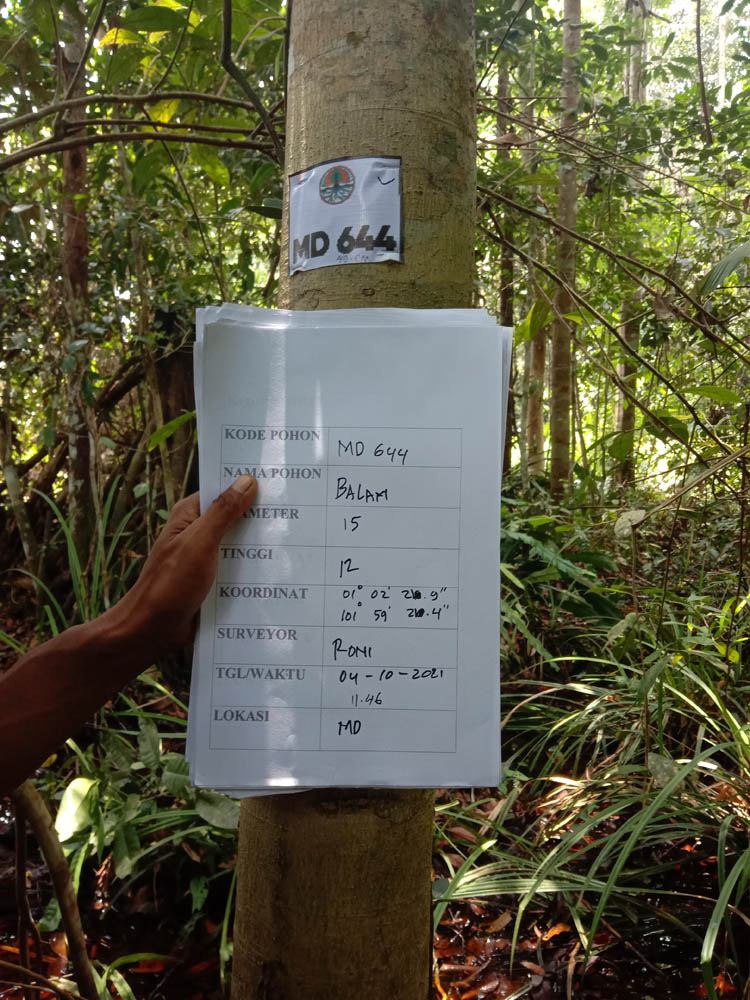 MD 644
KODE POHON MD 644
NAMA POHON BALAM
AMETER 15
TINGGI 12
KOORDINAT 01° 02'
101° 59'
SURVEYOR RONI
TGL/WAKTU 04-10-2021
11.46
LOKASI MD